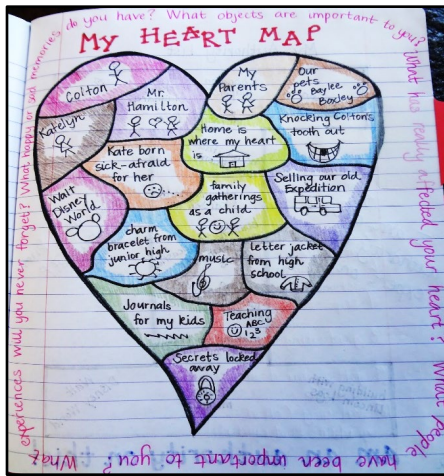 do you have? What objects are important to you?
What has really affected your heart? What people
have been important to you? What
experiences will you never forget? What happy or sad memories
MY HEART MAP
Colton
Mr.
Hamilton
My
Parents
Our
pets
Baylee
Boxley
Katelyn
Home is
where my heart
is
Knocking Colton's
tooth out
Kate born
sick-afraid
for her
Selling our old
Expedition
Walt
Disney
World
family
gatherings
as a child
charm
bracelet from
junior high
music
letter jacket
from high
school
Journals
for my kids
Teaching
ABC
123
Secrets locked
away